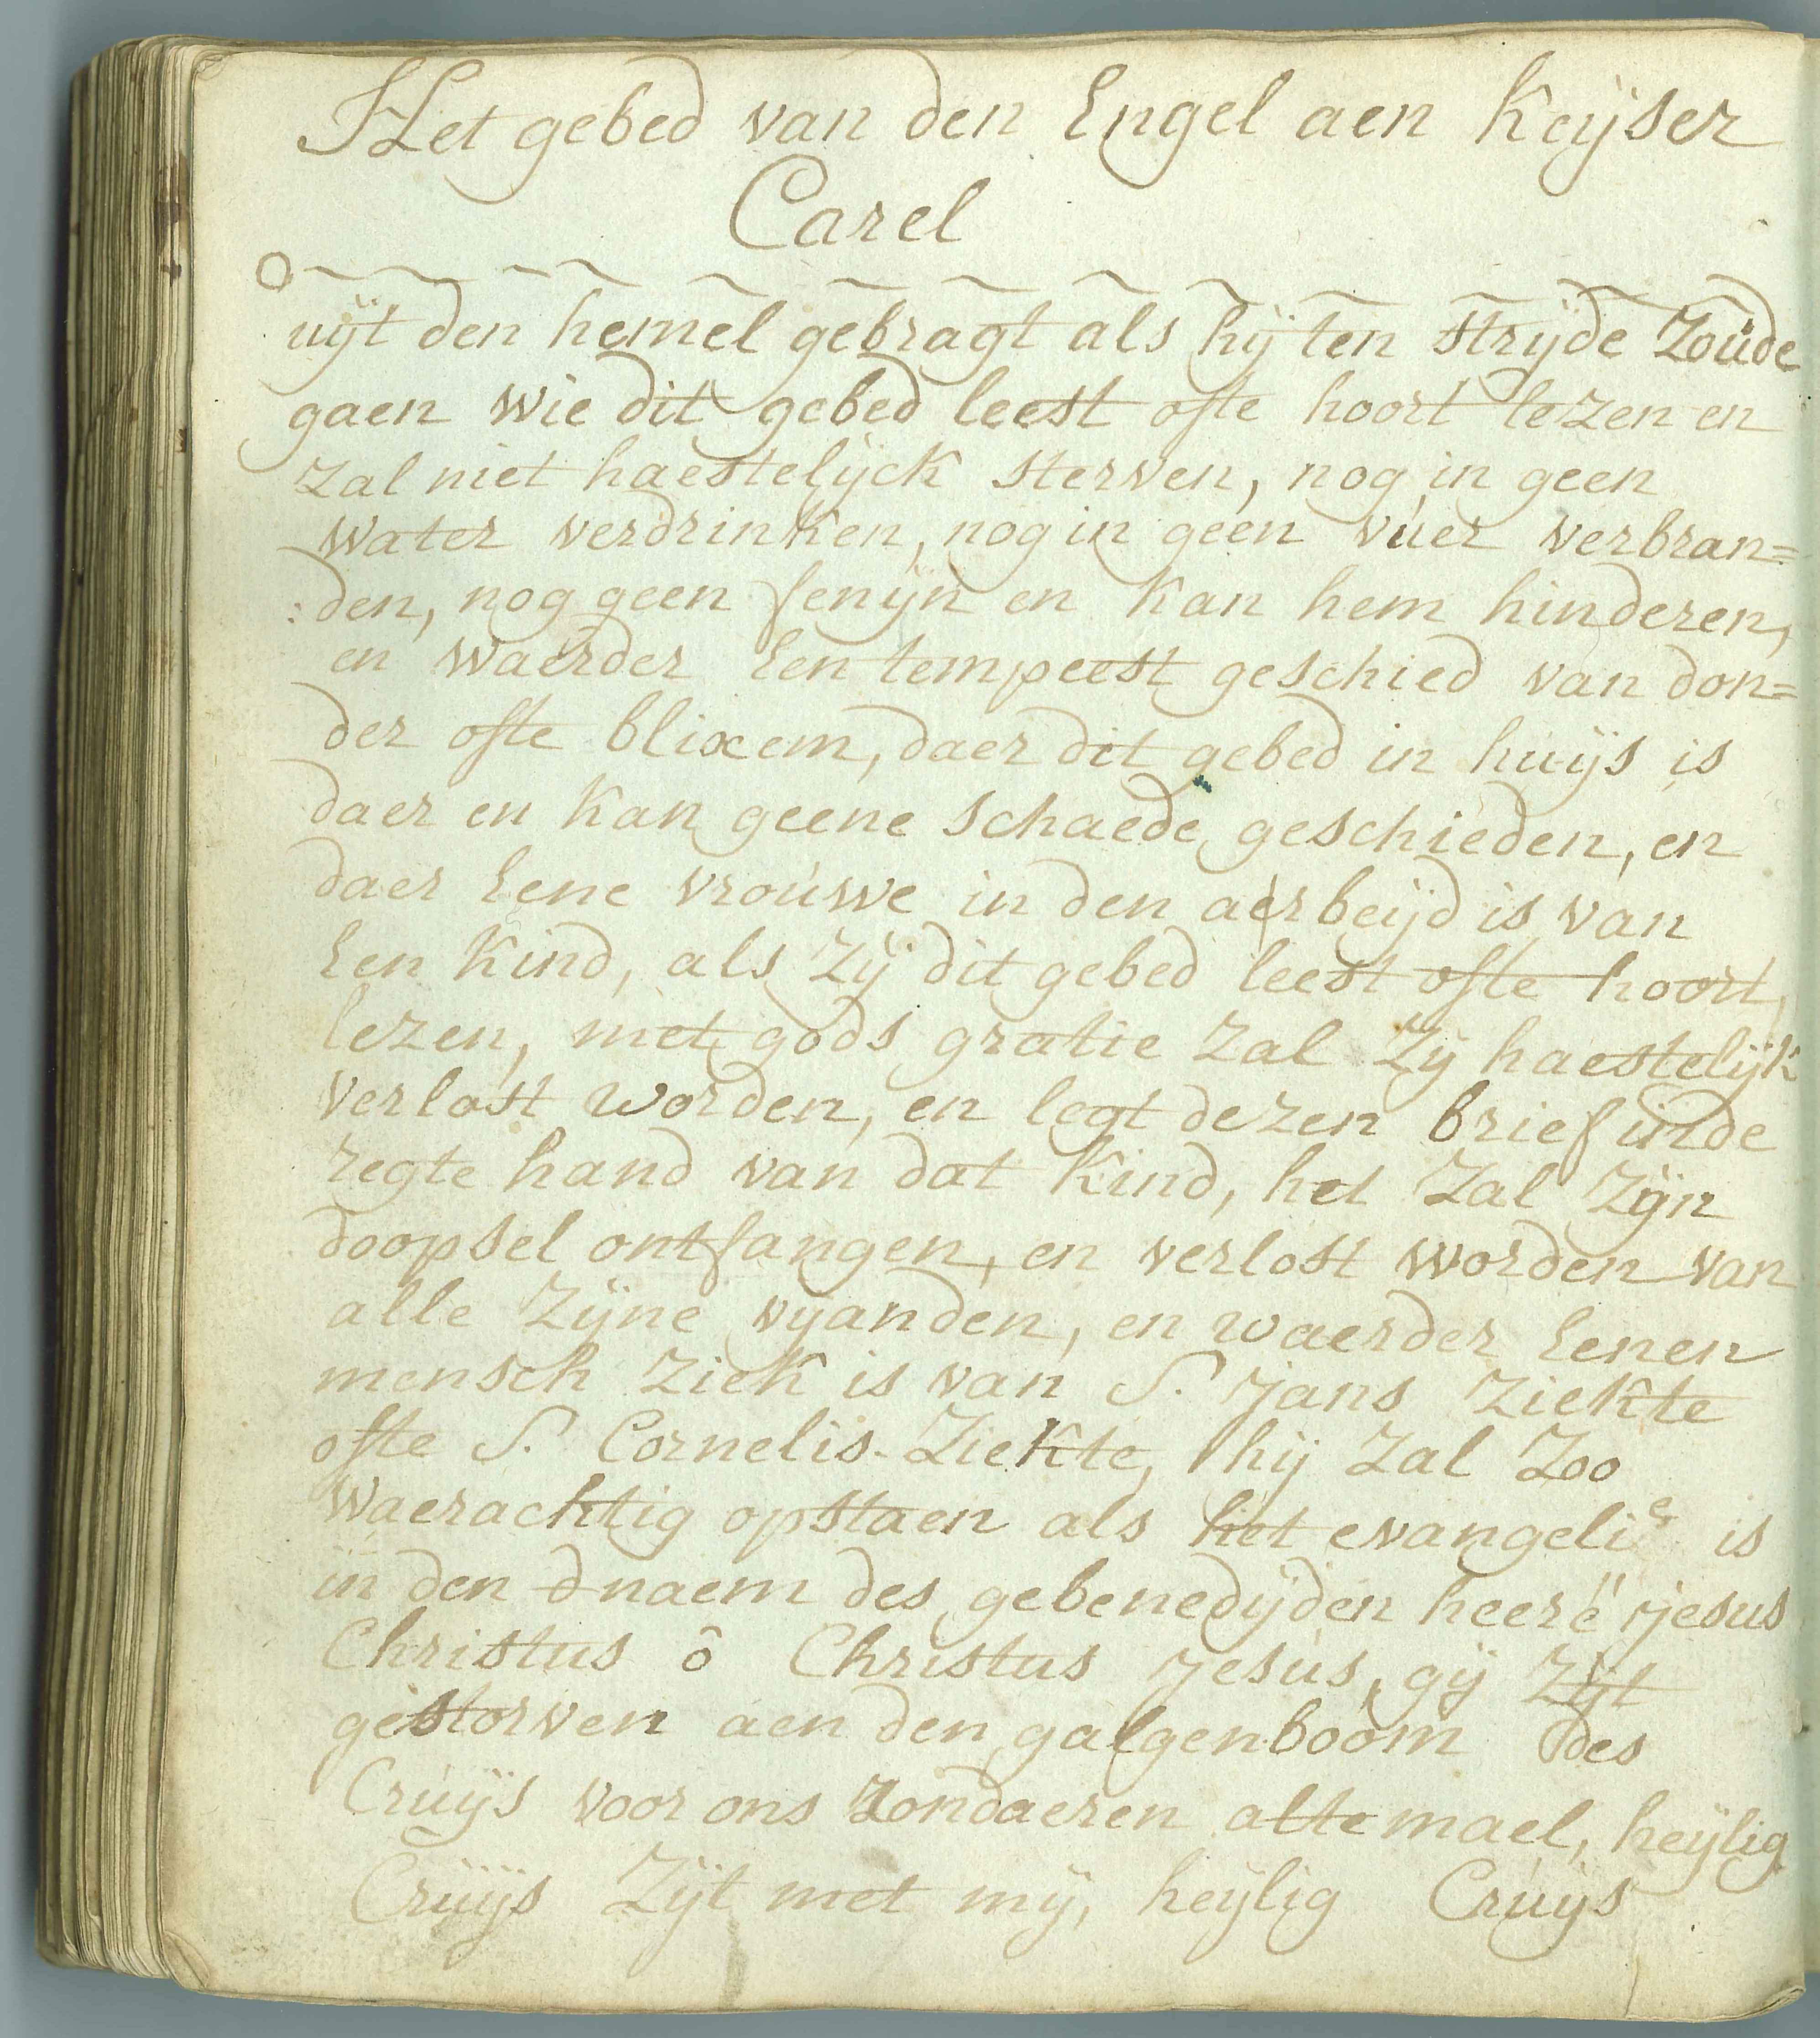 Het gebed van den Engel aen Keÿser
Carel
uÿt den hemel gebragt als hÿ ten strÿde Zoude
gaen wie dit gebed leest ofte hoort lezen en
zal niet haestelÿck sterven, nog in geen
water verdrinken, nog in geen vuer verbran=
:den, nog geen fenÿn en kan hem hinderen,
en waerder Een tempeest geschied van don=
der ofte blixem, daer dit gebed in huÿs is
daer en kan geene schaede geschieden, en
daer Eene vrouwe in den aerbeÿd is van
Een Kind, als Zÿ dit gebed leest ofte hoort
lezen, met gods gratie zal Zÿ haestelÿk
verlost worden, en legt dezen brief in de
regte hand van dat Kind, het Zal Zÿn
doopsel ontfangen, en verlost worden van
alle Zÿne vÿanden, en waerder Eenen
mensch ziek is van S. jans ziekte
ofte S. Cornelis-Ziekte, hÿ Zal Zoo
waerachtig opstaen als het evangelie is
in den d naem des gebenedÿden heere jesus
Christus ô Christus jesus, gÿ Zÿt
gestorven aen den galgenboom des
Cruÿs voor ons zondaeren altemael, heÿlig
Cruÿs Zÿt met mÿ, heÿlig Cruÿs